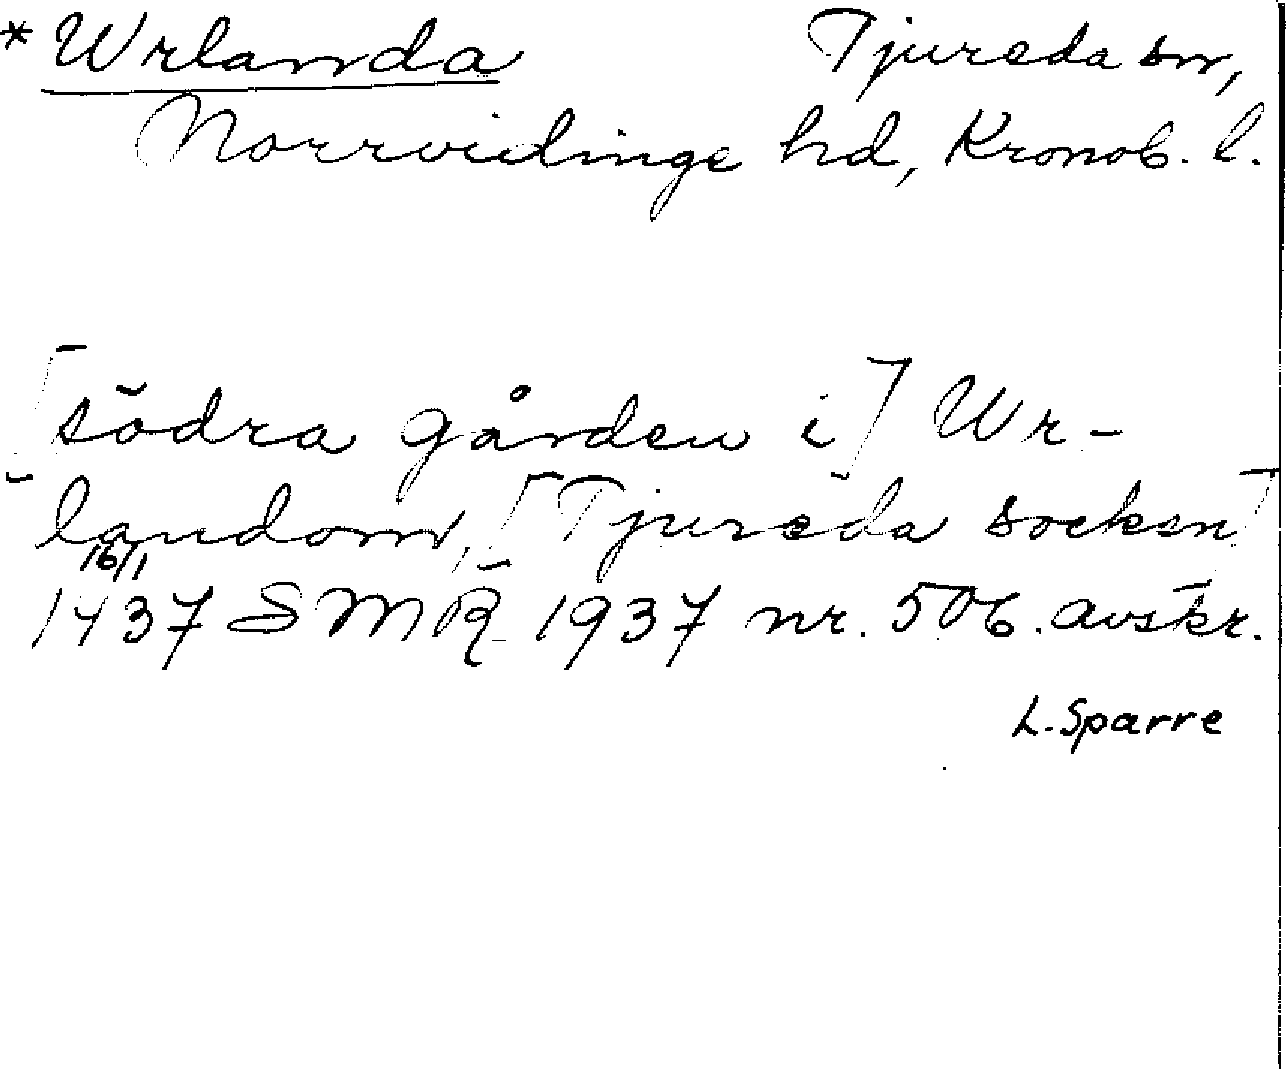 * Wrlanda Tjureda sn,
Norrvidinge hd, Kronob. l.
[södra gården i] Wr-
landom, [Tjureda socken]
16/1
1437 SMR 1937 nr. 506. avskr.
L. Sparre